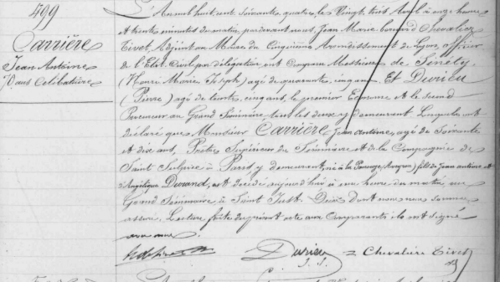 499
Carrière
Jean Antoine
70 ans Célibataire
L'An mil huit cent soixante quatre, le Vingt trois Avril à onze heures
et trente minutes du matin, pardevant nous Jean Marie Chevalier
Tivet, Adjoint au Maire du Cinquième Arrondissement de Lyon, officier
de l'Etat Civil par délégation, ont Comparu Messieurs de
(Henri Marie Joseph) agé de quarante cinq ans, Et Devrieu
(Pierre) agé de trente cinq ans, le premier Econome et le second
Procureur au Grand Séminaire tous les deux y demeurant Lesquels ont
déclaré que Monsieur Carrière Jean Antoine, agé de Soixante
et dix ans, Prêtre Supérieur du Séminaire et de la Compagnie de
Saint Sulpice à Paris y demeurant né à la (Aveyron) fils de Jean Antoine et
Angélique Durand, est décédé aujourd'hui à une heure du matin au
Grand Séminaire à Saint Just. Dont nous nous sommes
assuré. Lecture faite du présent acte aux Comparants ils ont signé
avec nous.
Chevalier Tivet